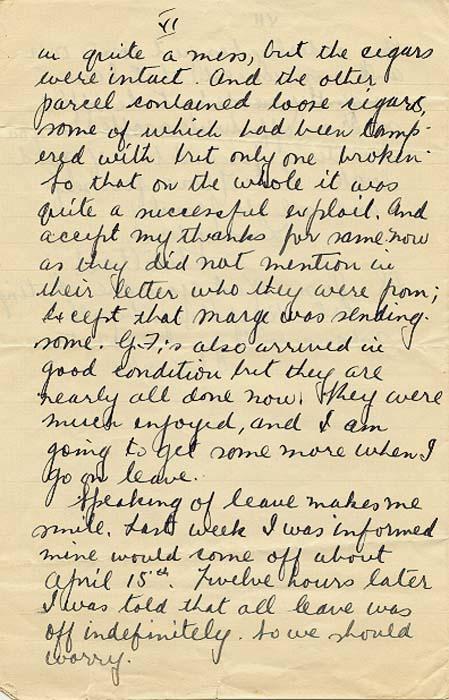 VI
in quite a mess, but the cigars
were intact. And the other
parcel contained loose cigars,
some of which had been tamp-
ered with but only one broken.
So that on the whole it was
quite a successful exploit. And
accept my thanks for same now
as they did not mention in
their letter who they were from;
except that Marge was sending
some. G.F.'s also arrived in
good condition but they are
nearly all done now. They were
much enjoyed, and I am
going to get some more when I
go on leave.
Speaking of leave makes me
smile. Last week I was informed
mine would come off about
April 15th. Twelve hours later
I was told that all leave was
off indefinitely. So we should
worry.